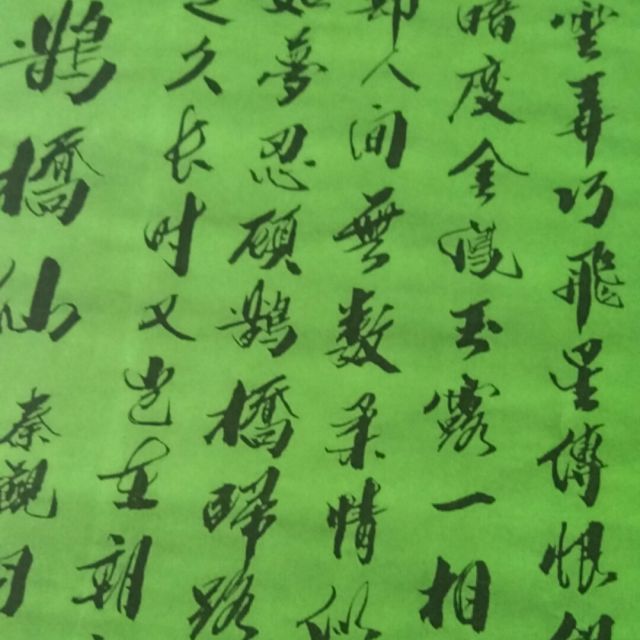 雲弄巧飛星傳恨銀
暗度金風玉露一相
却人间無數柔情似
如夢忍顧鵲橋歸路
是久长时又岂在朝
鵲橋仙 秦觀詞